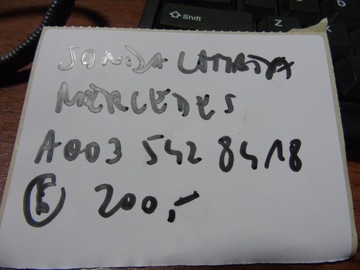 Shift
SONDA LAMBDA
MERCEDES
A003 542 8418
E 200,-